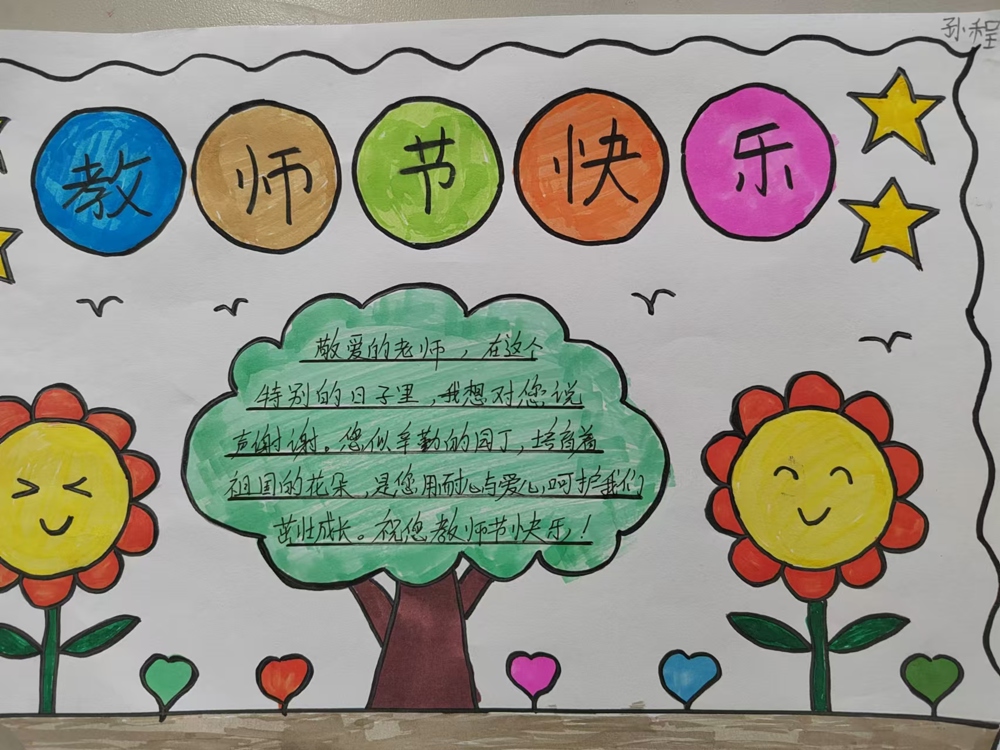 孙程
教师节快乐
敬爱的老师，在这个
特别的日子里，我想对您说
声谢谢。您似辛勤的园丁，培育着
祖国的花朵，是您用耐心与爱心，呵护我们
茁壮成长。祝您教师节快乐！